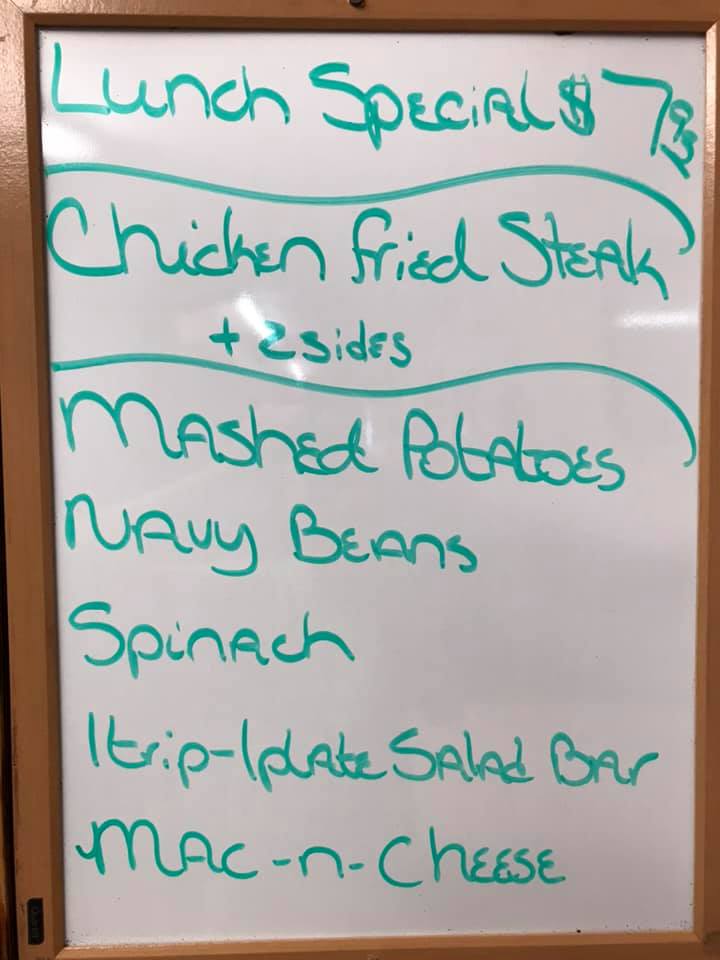 Lunch Special $ 7.95
Chicken fried Steak
+ 2 sides
Mashed Potatoes
Navy Beans
Spinach
1 trip-1 plate Salad Bar
Mac-n-Cheese